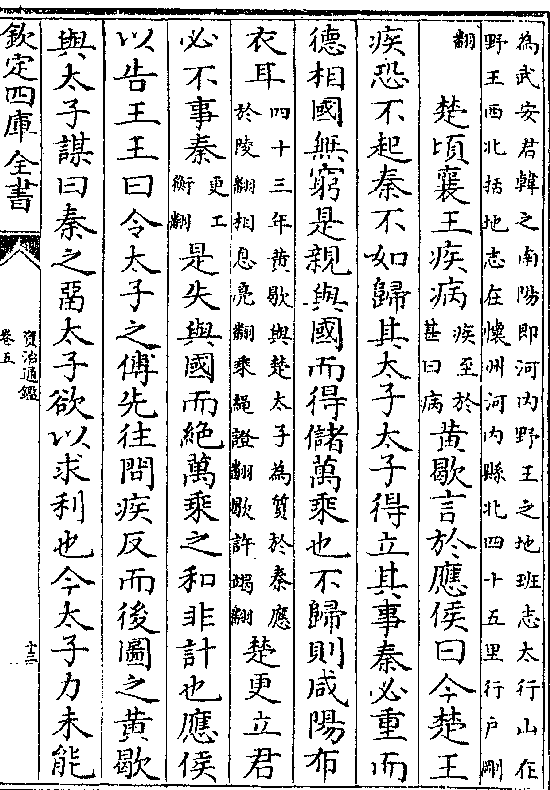 為武安君韓之南陽即河内野王之地班志太行山在
野王西北括地志在懷州河内縣北四十五里行户剛
翻
楚頃襄王疾病
疾至於
甚曰病
黄歇言於應侯曰今楚王
疾恐不起秦不如歸其太子太子得立其事秦必重而
德相國無窮是親與國而得儲萬乘也不歸則咸陽布
衣耳
四十三年黄歇與楚太子為質於秦應
於陵翻相息亮翻乘繩證翻歇許竭翻
楚更立君
必不事秦
更工
衡翻
是失與國而絶萬乘之和非計也應侯
以告王王曰令太子之傅先往問疾反而後圖之黄歇
與太子謀曰秦之留太子欲以求利也今太子力未能
欽定四庫全書
資治通鑑
卷五
十三